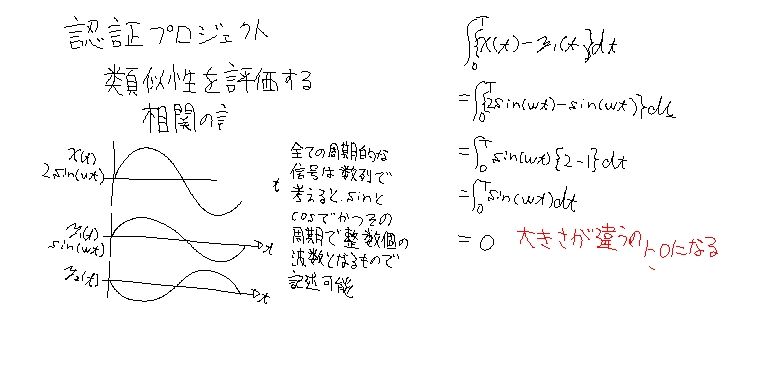 認証プロジェクト
類似性を評価する
相関の話
x(t)
2sin(wt)
t
y₁(t)
sin(wt)
t
y₂(t)
t
全ての周期的な
信号は数列で
考えると、sinと
cosでかつその
周期で整数個の
波数となるもので
記述可能
∫₀ᵀ{x(t)-y₁(t)}dt
=∫₀ᵀ{2sin(wt)-sin(wt)}dt
=∫₀ᵀsin(wt){2-1}dt
=∫₀ᵀsin(wt)dt
=0 大きさが違うのに0になる